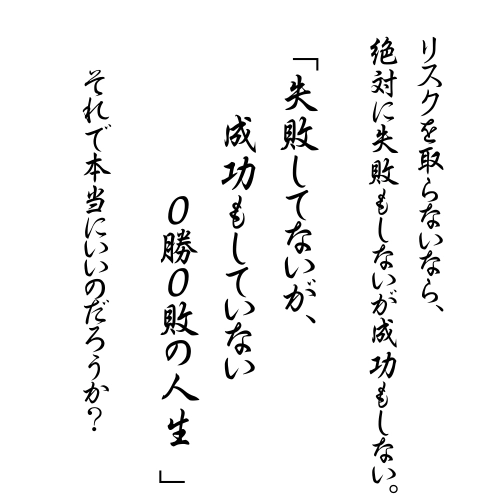 リスクを取らないなら、
絶対に失敗もしないが成功もしない。
「失敗してないが、
成功もしていない
０勝０敗の人生」
それで本当にいいのだろうか？